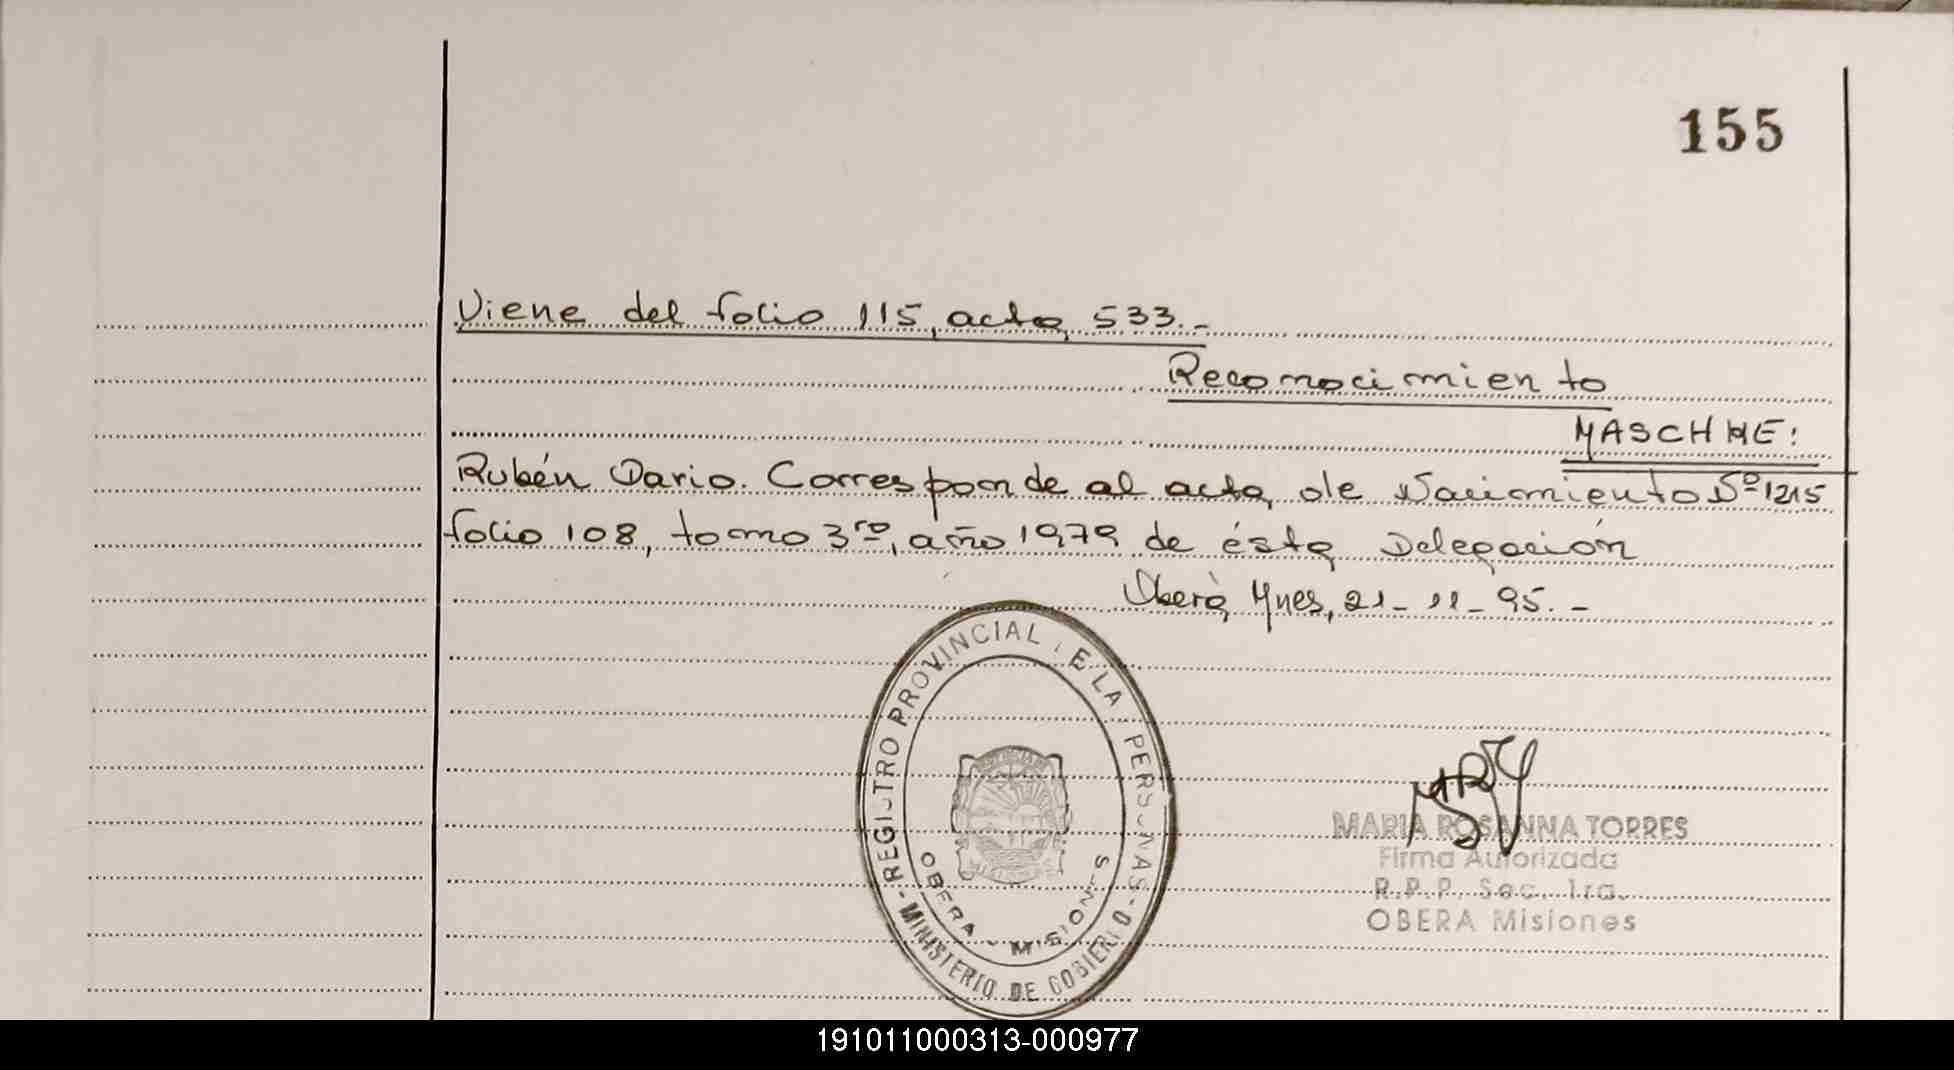 155
Viene del folio 115, acta 533.-
Reconocimiento
MASCHKE:
Rubén Dario. Corresponde al acta de Nacimiento Nº 1215
folio 108, tomo 3ro, año 1979 de ésta Delegación
Oberá, Mnes, 21-11-95.-
REGISTRO PROVINCIAL DE LA PERSONAS - MINISTERIO DE GOBIERNO
OBERA - MISIONES
MARIA ROSANNA TORRES
Firma Autorizada
R.P.P. Sec. 1ra.
OBERA Misiones
191011000313-000977